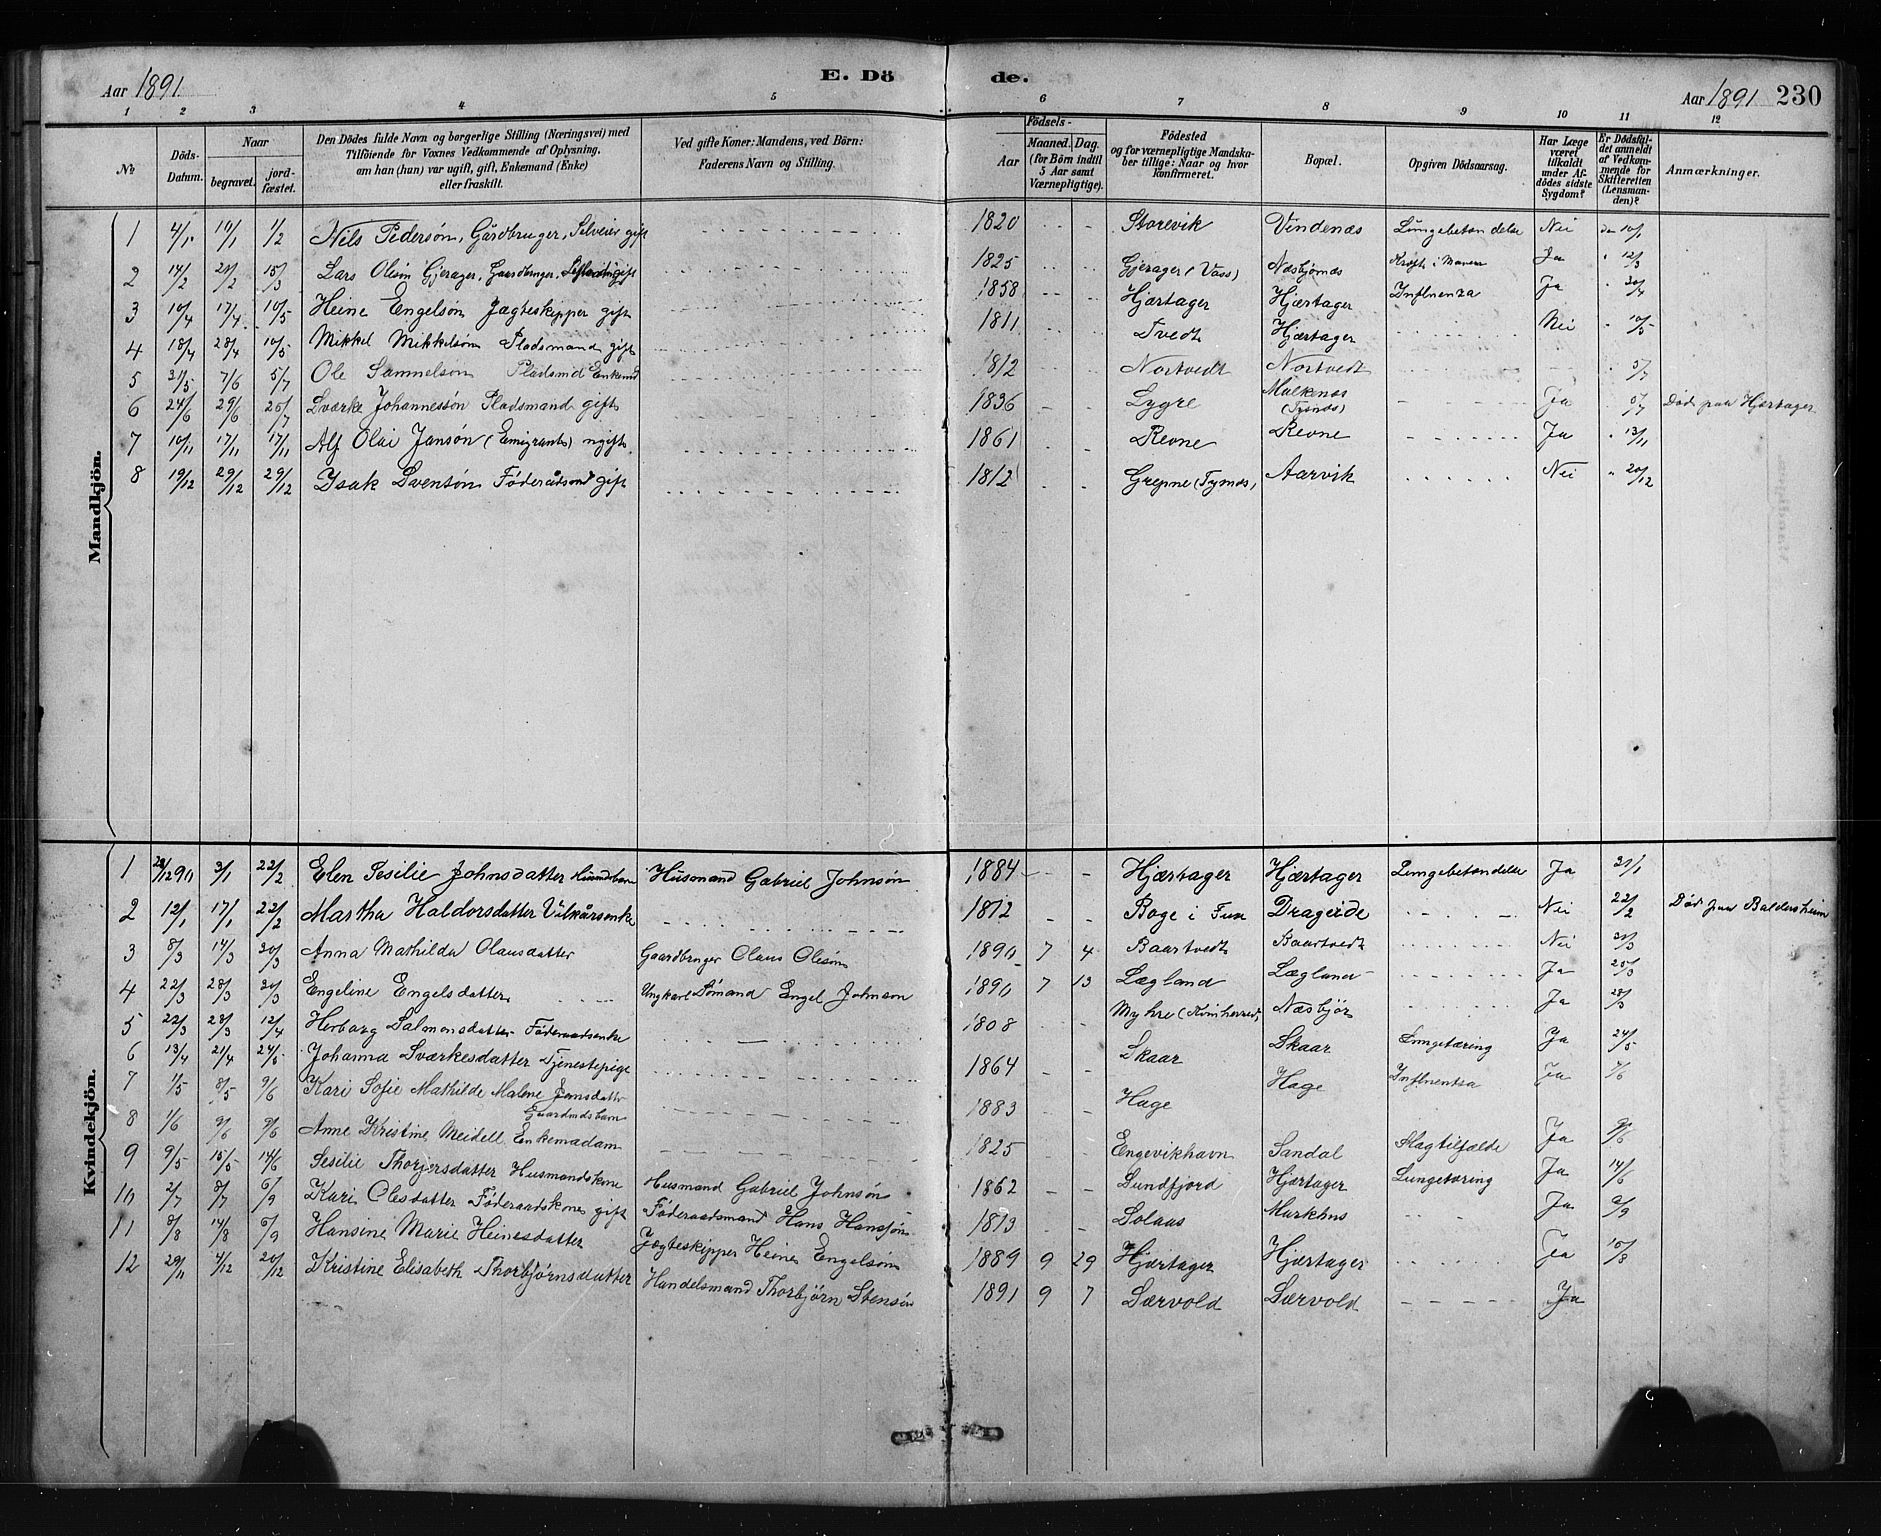 Aar 1891. E. Dö de. Aar 1891 230
1 2 3 4 5 6 7 8 9 10 11 12
№
Döds-Datum.
Naar
begravet.
jord-fæstet.
Den Dödes fulde Navn og borgerlige Stilling (Næringsvei) med
Tilföiende for Voxnes Vedkommende af Oplysning.
om han (hun) var ugift, gift, Enkemand (Enke)
eller fraskilt.
Ved gifte Koner: Mandens, ved Börn:
Faderens Navn og Stilling.
Födsels-
Aar
Maaned. Dag.
(for Börn indtil
5 Aar samt
Værnepligtige).
Födested
og for værnepligtige Mandska-
ber tillige: Naar og hvor
konfirmeret.
Bopæl.
Opgiven Dödsaarsag.
Har Læge
været
tilkaldt
under Af-
dödes sidste
Sygdom?
Er Dödsfal-
det anmeldt
af Vedkom-
mende for
Skifteretten
(Lensman-
den)?
Anmærkninger.
Mandkjön.
1 4/1 10/1 1/2 Nils Pedersøn, Gårdbruger, Selveier gift 1820 Storevik Vindenæs Lungebetændelse Nei den 10/1
2 14/2 21/2 15/3 Lars Olsøn Gjerager, Gaardbruger, gift 1825 Gjerager (Vass) Næsbjørnæs Kræft i Maven Ja " 12/3
3 10/4 17/4 10/5 Heine Engelsøn Jægteskipper gift 1858 Hjærtager Hjærtager Influenza Ja " 20/4
4 18/4 28/4 10/5 Mikkel Mikkelsøn Pladsmand gift 1811 Tvedt Hjærtager Nei " 10/5
5 31/5 7/6 5/7 Ole Samuelsøn Pladsmd Enkemd 1812 Nortvedt Nortvedt " 5/7
6 24/6 29/6 25/7 Sværke Johannessøn Pladsmand gift 1836 Lygre Malkenæs (Tysnæs) Ja " 5/7 Død paa Hjærtager
7 10/11 17/11 17/11 Alf Olai Jansøn (Emigrant) ugift 1861 Revne Revne Ja " 13/11
8 19/12 29/12 29/12 Isak Svensøn Føderådsmd gift 1812 Grepne (Tysnæs) Aarvik Nei " 20/12
Kvindekjön.
1 28/12 90 3/1 22/2 Elen Sesilie Johnsdatter Husmdbarn Husmand Gabriel Johnsøn 1884 Hjærtager Hjærtager Lungebetændelse Ja 31/1
2 12/1 17/1 22/2 Martha Haldorsdatter Vilkårsenke 1812 Boge i Fuse Drageide Nei 22/2 Død paa Baldersheim
3 8/3 14/3 30/3 Anna Mathilda Olausdatter Gaardbruger Olaus Olesøn 1890 7 4 Baartvedt Baartvedt Nei 30/3
4 22/3 28/3 30/3 Engeline Engelsdatter Ungkarl Sømand Engel Johnson 1890 7 13 Lægland Lægland Ja 25/3
5 22/3 28/3 12/4 Herborg Salmonsdatter Føderaadsenke 1808 Myhre Næsbjør Ja 28/3
6 13/4 21/4 24/5 Johanna Sværkesdatter Tjenestepige 1864 Skaar Skaar Lungetæring Ja 24/5
7 1/5 8/5 9/6 Kari Sofie Mathilde Malene Jonsdatter Gaardmdsbarn 1883 Hage Hage Influentsa Ja 7/6
8 1/6 9/6 9/6 Anne Kristine Meidell Enkemadam 1825 Engevikhavn Sandal Slagtilfælde Ja 9/6
9 9/5 15/5 14/6 Sesilie Thorjersdatter Husmandskone Husmand Gabriel Johnsøn 1862 Sundfjord Hjærtager Lungetæring Ja 14/6
10 2/7 8/7 6/9 Kari Olesdatter Føderaadskone gift Føderaadsmand Hans Hanssøn 1813 Solaas Markhus Ja 6/9
11 8/8 14/8 6/9 Hansine Marie Heinesdatter Jægteskipper Heine Engelsøn 1889 9 29 Hjærtager Hjærtager Ja 15/8
12 29/11 4/12 20/12 Kristine Elisabeth Thorbjørnsdatter Handelsmand Thorbjørn Stensøn 1891 9 7 Særvold Særvold Ja